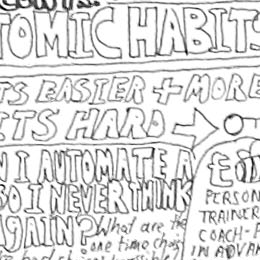 TOMIC HABITS
TS EASIER + MORE
ITS HARD →
N I AUTOMATE A
SO I NEVER THINK
AGAIN?
What are the
one time choices
PERSON
TRAINER
COACH-P
IN ADVAN